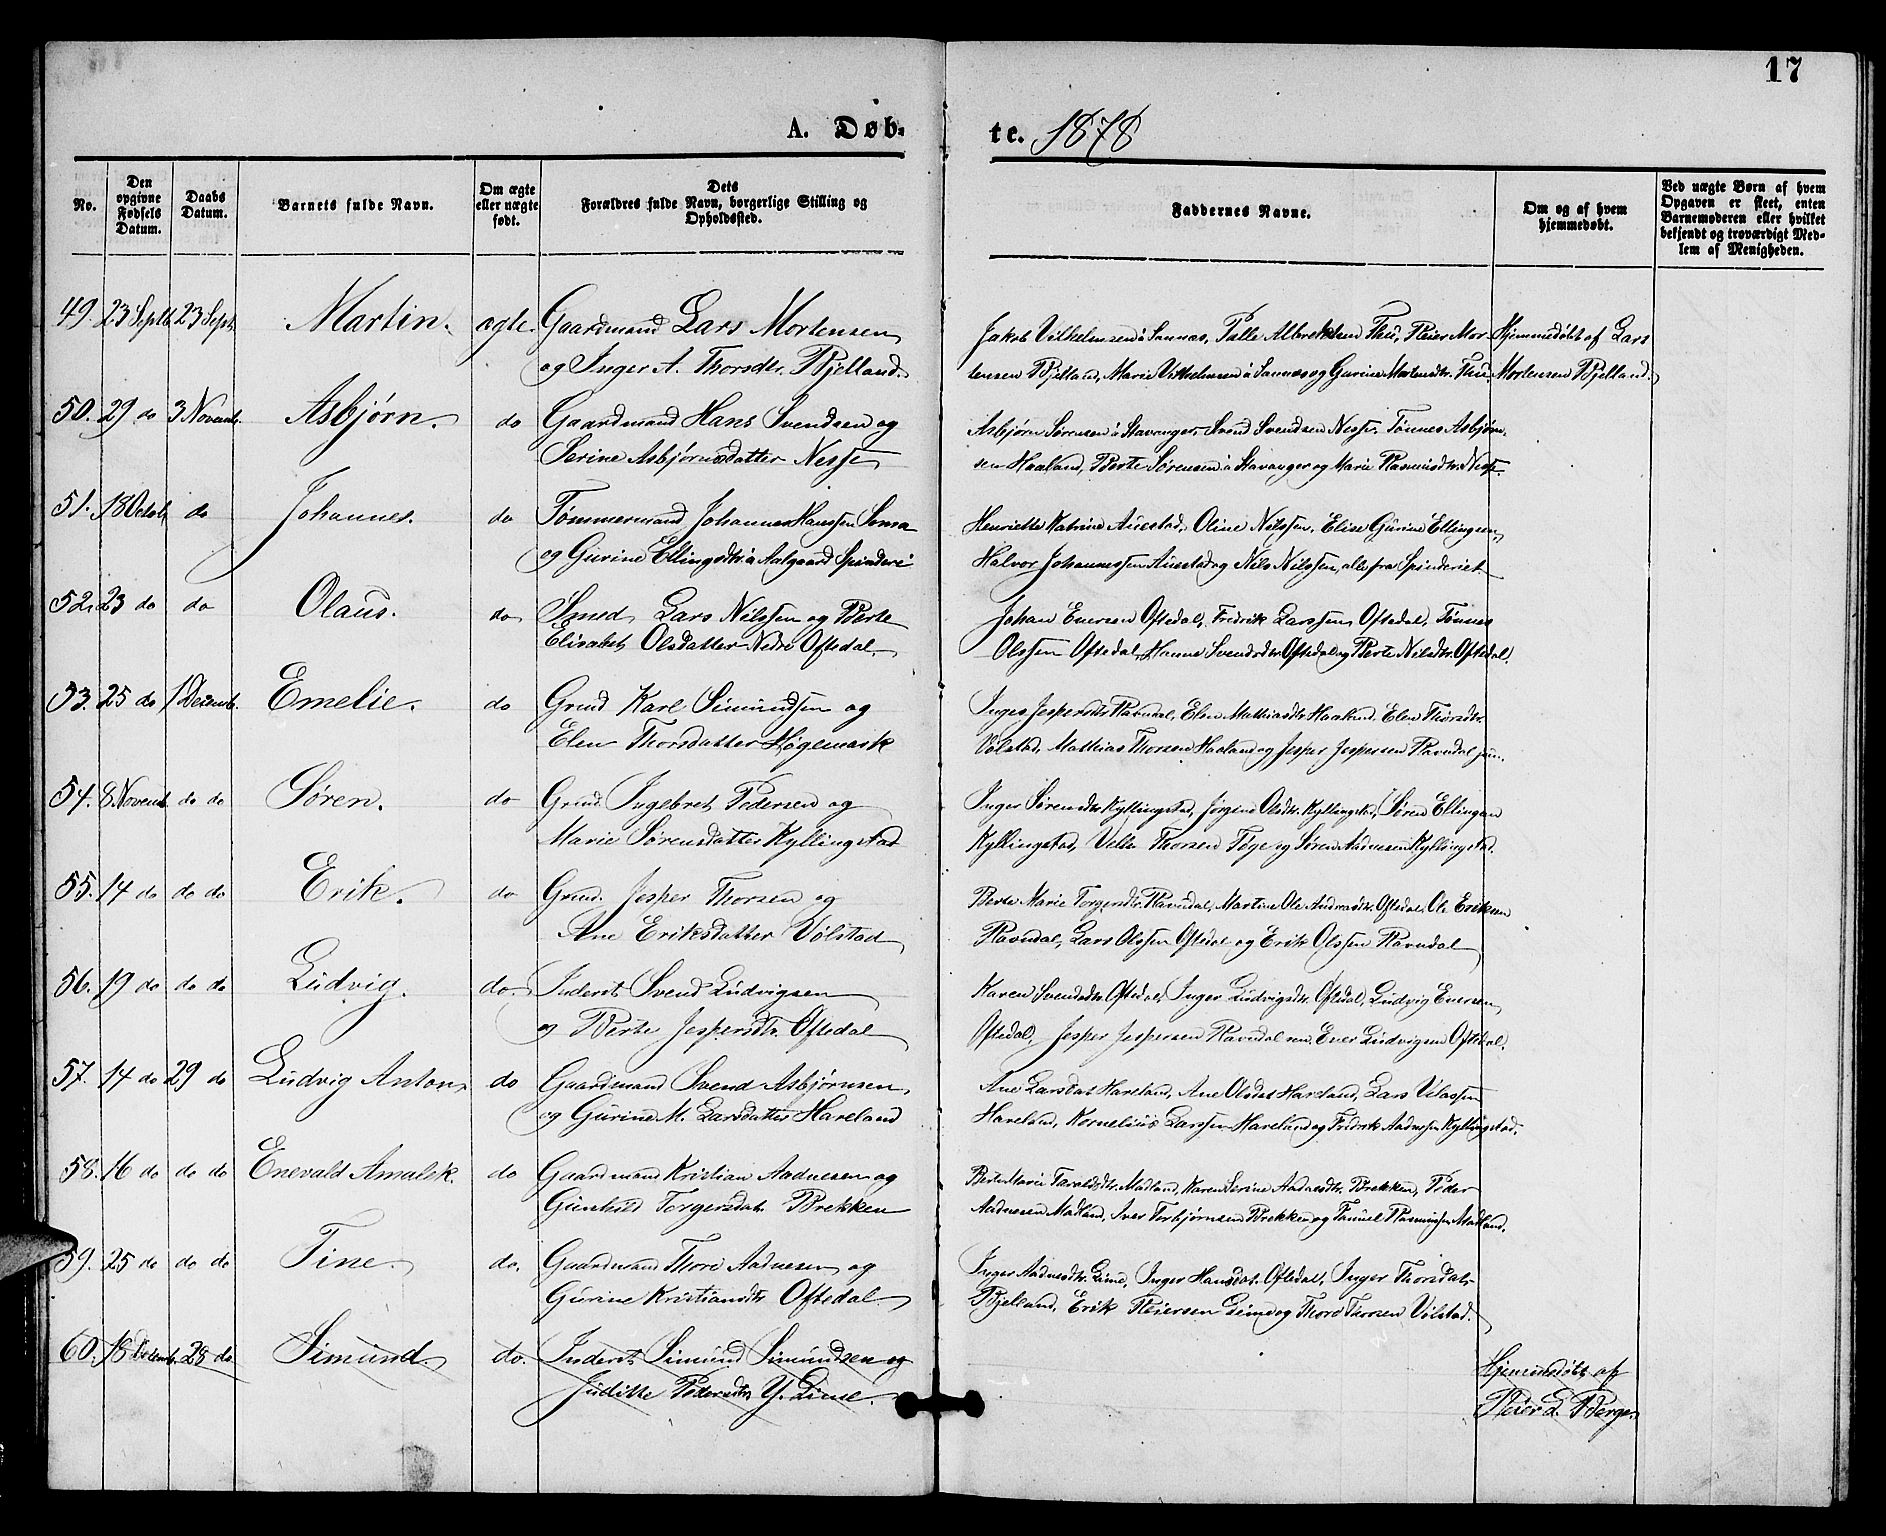 17
A. Døb-
te. 1878
No.
Den opgivne Fødsels Datum.
Daabs Datum.
Barnets fulde Navn.
Om ægte eller uægte født.
Dets Forældres fulde Navn, borgerlige Stilling og Opholdssted.
Faddernes Navne.
Om og af hvem hjemmedøbt.
Ved uægte Børn af hvem Opgaven er skeet, enten Barnemoderen eller hvilket bekjendt og troværdigt Medlem af Menigheden.
49. 23 Septb. 23 Sept. Martin. ægte. Gaardmand Lars Mortensen
og Inger A. Thorsdtr. Bjelland.
Jakob Vilhelmsen à Sannæs, Palle Albrektsen Thu, Peier Mor-
tensen Bjelland, Marie Vilhelmsen à Sannæs og Gurine Mortensdtr. Thu.
Hjemmedøbt af Lars
Mortensen Bjelland.
50. 29 do 3 Novemb. Asbjørn. do Gaardmand Hans Svendsen og
Serine Asbjørnsdatter Nesse
Asbjørn Sørensen à Stavanger, Svend Svendsen Nesse, Tønnes Asbjørn-
sen Haaland, Berte Sørensen à Stavanger og Marie Rasmusdtr. Nesse.
51. 18 Octob. do Johannes. do Tømmermand Johannes Hanssen Sema
og Gurine Ellingsdtr. à Aalgaard Spinderi
Henriette Katrine Auestad, Oline Nilssen, Elise Gurine Ellingsen,
Halvor Johannessen Auestad og Nils Nilssen, alle fra Spinderiet
52. 23 do do Olaus. do Smed Lars Nilssen og Berte
Elisabet Olsdatter Nedre Oftedal.
Johan Enersen Oftedal, Fredrik Larssen Oftedal, Tønnes
Olssen Oftedal, Hanne Svendsdtr. Oftedal og Berte Nilsdtr. Oftedal.
53. 25 do 1 Decemb. Emelie. do Grmd Karl Simundsen og
Elen Thorsdatter Høgemark
Inger Jespersdtr. Ravndal, Elen Mathiasdtr. Haaland, Elen Thorsdtr.
Vølstad, Mathias Thorsen Haaland og Jesper Jespersen Ravndal jun.
54. 8 Novemb. do do Søren. do Grmd. Ingebret Pedersen og
Marie Sørensdatter Kyllingstad
Inger Sørensdtr. Kyllingstad, Jørgine Olsdtr. Kyllingstad, Søren Ellingsen
Kyllingstad, Thorsen og Søren Aadnesen Kyllingstad.
55. 14 do do do Erik. do Grmd. Jesper Thorsen og
Ane Eriksdatter Vølstad
Berte Marie Torgersdtr. Ravndal, Martine Ole Andreasdtr. Oftedal, Ole Eriksen
Ravndal, Lars Olssen Oftedal og Erik Olssen Ravndal
56. 19 do do do Ludvig. do. Inderst Svend Ludvigsen
og Berte Jespersdtr. Oftedal
Karen Svendsdtr. Oftedal, Inger Ludvigsdtr. Oftedal, Ludvig Enersen
Oftedal, Jesper Jespersen Ravndal sen. Ener Ludvigsen Oftedal.
57. 14 do 29 do Ludvig Anton. do Gaardmand Svend Asbjørnsen,
og Gurine M. Larsdatter Haveland
Ane Larsdat. Haveland, Ane Olsdat. Haveland, Lars Vilassen
Haveland, Kornelius Larssen Haveland og Fredrik Aadnessen Kyllingstad.
58. 16 do do do Enevald Amalek. do Gaardmand Kristian Aadnesen og
Gunhild Torgersdat. Brekken
Berte Marie Taraldsdtr. Madland, Karen Serine Aadnesdtr. Brekken, Peder
Aadnesen Madland, Iver Torbjørnsen Brekken og Samuel Rasmussen Madland.
59. 25 do do do Tine. do. Gaardmand Thore Aadnesen og
Gurine Kristiansdtr. Oftedal.
Inger Aadnesdtr. Lime, Inger Hansdat. Oftedal, Inger Thorsdat.
Bjelland, Erik Peiersen Lime og Thore Thorsen Vølstad.
60. 18 Decemb. 28 do. Simund. do. Inderst Simund Simundsen og
Juditte Pedersdtr. Y. Lime.
Hjemmedøbt af
Peier L. Berge.